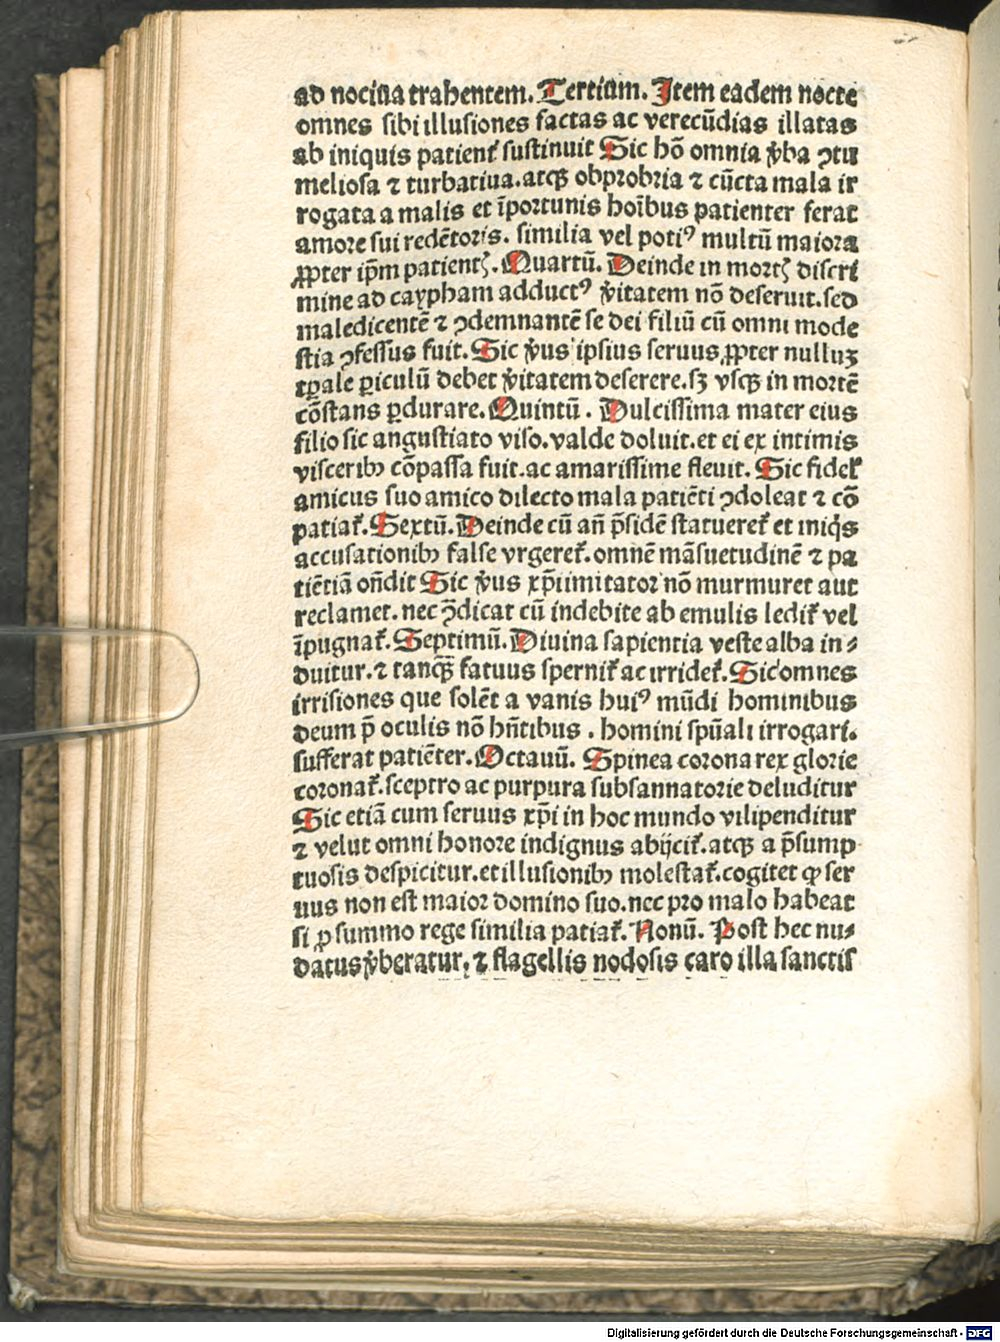 ad nociua trahentem. Tertium. Item eadem nocte
omnes sibi illusiones factas ac verecūdias illatas
ab iniquis patient᷑ sustinuit Sic hō omnia v̾ba ꝯtu
meliosa ⁊ turbatiua. atqꝫ obprobria ⁊ cūcta mala ir
rogata a malis et īportunis hoībus patienter ferat
amore sui redētoris. similia vel potiꝰ multū maiora
ꝓpter ip̄m patientꝭ. Quartū. Deinde in mortꝭ discri
mine ad caypham adductꝰ v̾itatem nō deseruit. sed
maledicentē ⁊ ꝯdemnantē se dei filiū cū omni mode
stia ꝯfessus fuit. Sic v̾us ipsius seruus ꝓpter nulluꝫ
tꝑale ꝑiculū debet v̾itatem deserere. sꝫ vsqꝫ in mortē
cōstans ꝑdurare. Quintū. Dulcissima mater eius
filio sic angustiato viso. valde doluit. et ei ex intimis
visceribꝫ cōpassa fuit. ac amarissime fleuit. Sic fidel᷑
amicus suo amico dilecto mala patiēti ꝯdoleat ⁊ cō
patiat᷑. Sextū. Deinde cū an̄ p̄sidē statueret᷑ et iniq̇s
accusationibꝫ false vrgeret᷑. omnē māsuetudinē ⁊ pa
tiētiā on̄dit Sic v̾us xp̄i imitator nō murmuret aut
reclamet. nec ꝯ̄dicat cū indebite ab emulis ledit᷑ vel
īpugnat᷑. Septimū. Diuina sapientia veste alba in⸗
duitur. ⁊ tanqꝫ̄ fatuus spernit᷑ ac irridet᷑. Sic omnes
irrisiones que solēt a vanis huiꝰ mūdi hominibus
deum p̄ oculis nō hn̄tibus. homini spūali irrogari.
sufferat patiēter. Octauū. Spinea corona rex glorie
coronat᷑. sceptro ac purpura subsannatorie deluditur
Sic etiā cum seruus xp̄i in hoc mundo vilipenditur
⁊ velut omni honore indignus abijcit᷑. atqꝫ a p̄sump
tuosis despicitur. et illusionibꝫ molestat᷑. cogitet ꝙ ser
uus non est maior domino suo. nec pro malo habeat
si ꝓ summo rege similia patiat᷑. Nonū. Post hec nu⸗
datus v̾beratur, ⁊ flagellis nodosis caro illa sanctis
Digitalisierung gefördert durch die Deutsche Forschungsgemeinschaft - DFG